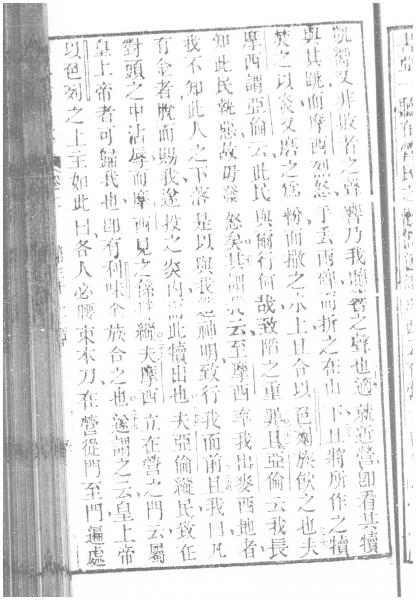 凱嚮又非敗者之聲轉乃我聽者之聲也適就近營卽看其犢
與其跳而摩西烈怒手丢兩碑而折之在山下且將所作之犢
焚之以炎又磨之爲粉而撒之水上且令以色列族飲之也夫
摩西謂亞倫云此民與爾行何哉致陷之重罪且亞倫云我長
知此民執惡故毋發怒矣其謂我云至摩西率我出麥西地者
我不知此人之下落是以與我造神明致行我面前且我曰凡
有金者脫而賜我遂投之炎內而此犢出也夫亞倫縱民致在
對頭之中沾辱而摩西見之係其縱夫摩西立在營之門云屬
皇上帝者可歸我也卽有利味全族合之也遂謂之云皇上帝
以色列之上主如此曰各人必腰束本刀在營從門至門遍處